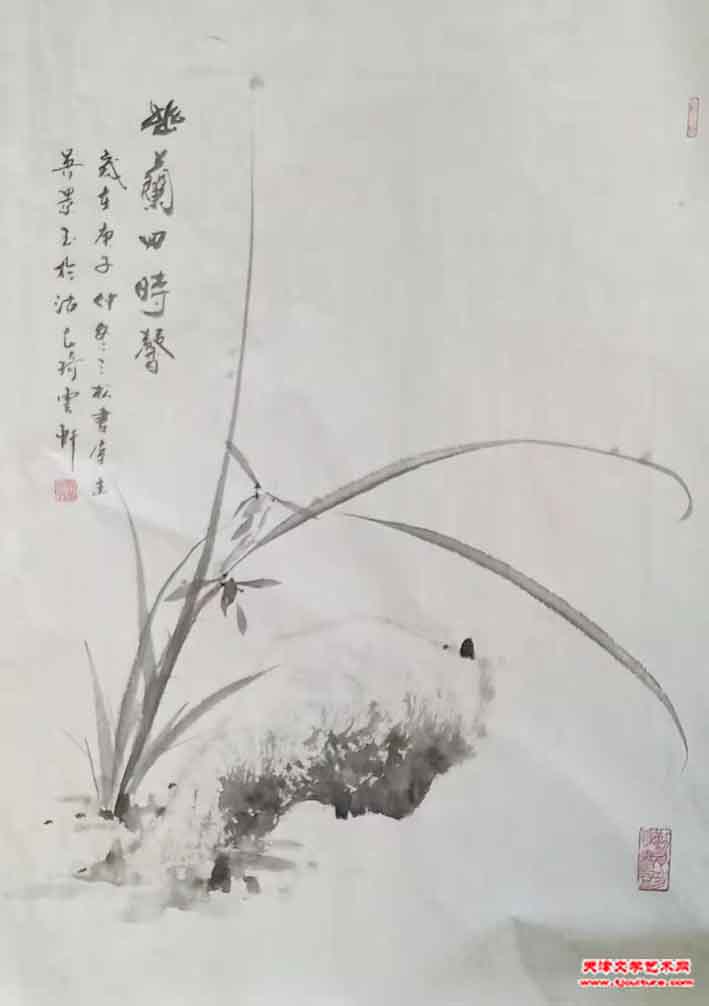 幽蘭四時馨
歲在庚子仲冬三松書屋主
吳景玉於沽上琦雲軒
天津文学艺术网
www.tjculture.com